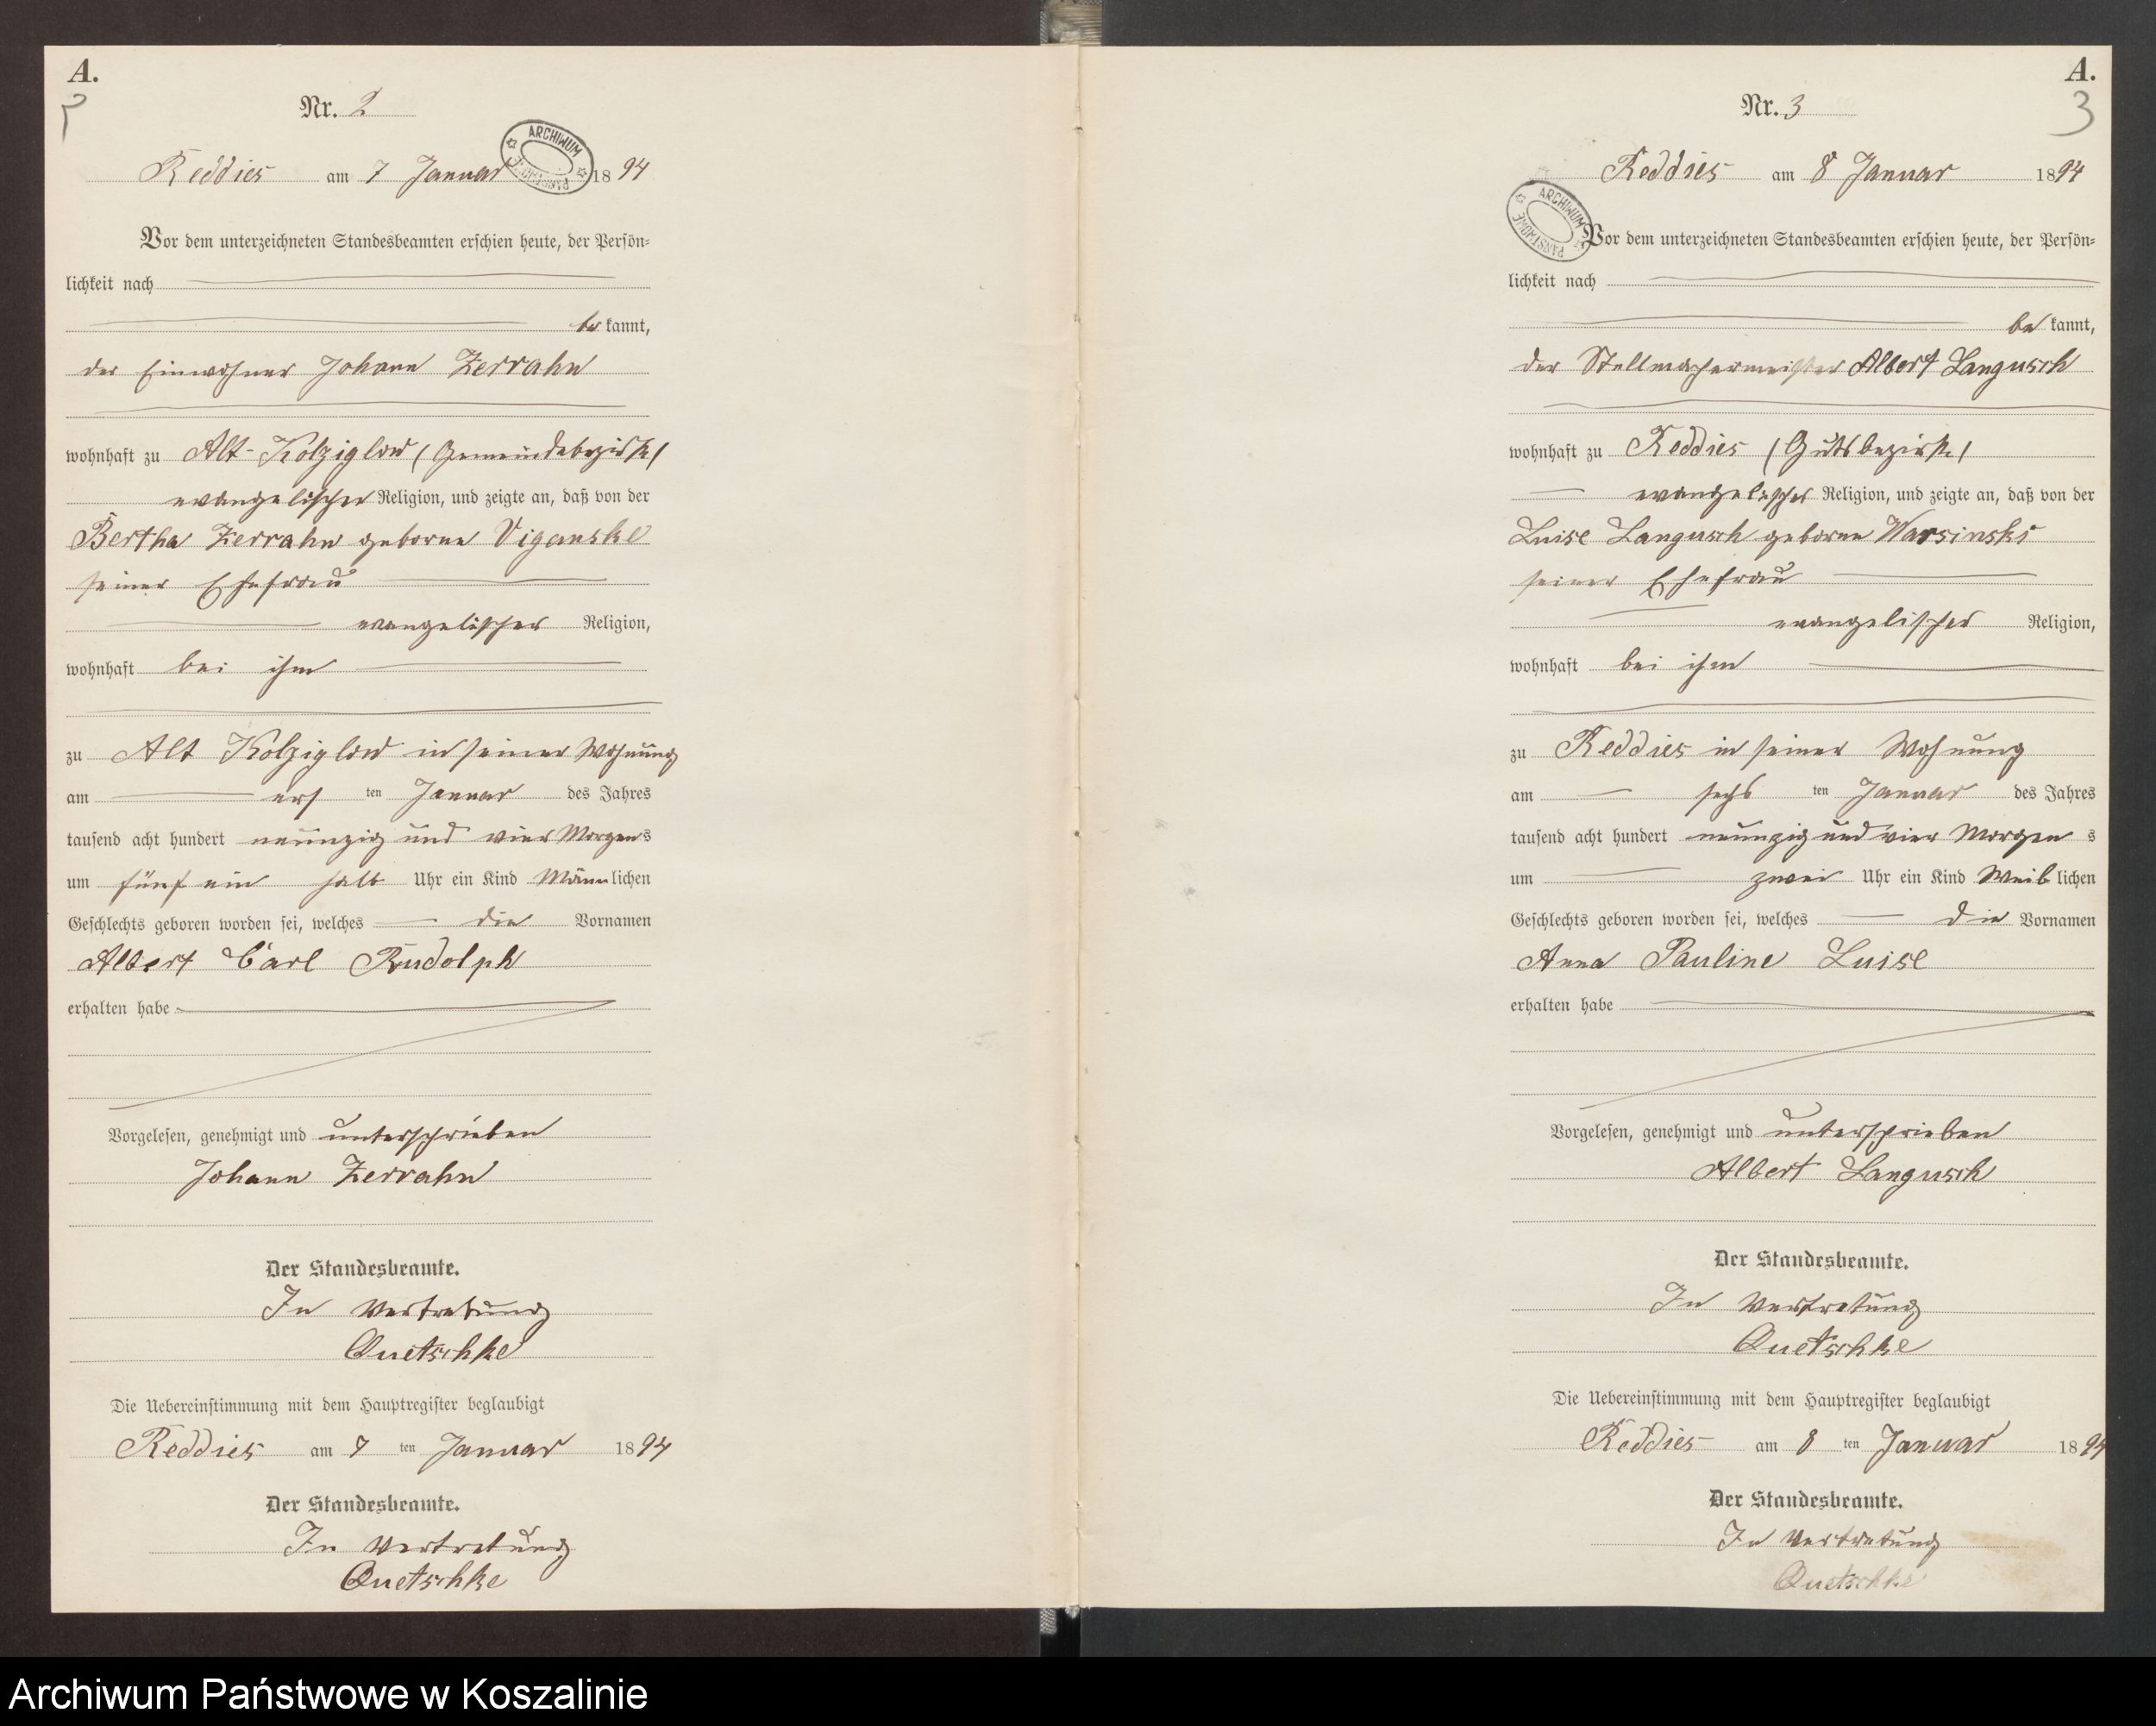 A.
2
Nr. 2
ARCHIWUM PAŃSTWOWE
Reddies am 7 Januar 1894
Vor dem unterzeichneten Standesbeamten erschien heute, der Persön=
lichkeit nach
be kannt,
der Einwohner Johann Zerrahn
wohnhaft zu Alt-Kolziglow (Gemeindebezirk)
evangelischer Religion, und zeigte an, daß von der
Bertha Zerrahn geborne Viganske
seiner Ehefrau
evangelischer Religion,
wohnhaft bei ihm
zu Alt Kolziglow in seiner Wohnung
am ersten Januar des Jahres
tausend acht hundert neunzig und vier Morgens
um fünf ein halb Uhr ein Kind Männlichen
Geschlechts geboren worden sei, welches die Vornamen
Albert Carl Rudolph
erhalten habe
Vorgelesen, genehmigt und unterschrieben
Johann Zerrahn
Der Standesbeamte.
In Vertretung
Quetschke
Die Uebereinstimmung mit dem Hauptregister beglaubigt
Reddies am 7 ten Januar 1894
Der Standesbeamte.
In Vertretung
Quetschke
A.
3
Nr. 3
ARCHIWUM PAŃSTWOWE
Reddies am 8 Januar 1894
Vor dem unterzeichneten Standesbeamten erschien heute, der Persön=
lichkeit nach
be kannt,
der Stellmachermeister Albert Langusch
wohnhaft zu Reddies (Gutsbezirk)
evangelischer Religion, und zeigte an, daß von der
Luise Langusch geborne Warsinski
seiner Ehefrau
evangelischer Religion,
wohnhaft bei ihm
zu Reddies in seiner Wohnung
am sechs ten Januar des Jahres
tausend acht hundert neunzig und vier Morgen s
um zwei Uhr ein Kind Weib lichen
Geschlechts geboren worden sei, welches die Vornamen
Anna Pauline Luise
erhalten habe
Vorgelesen, genehmigt und unterschrieben
Albert Langusch
Der Standesbeamte.
In Vertretung
Quetschke
Die Uebereinstimmung mit dem Hauptregister beglaubigt
Reddies am 8 ten Januar 1894
Der Standesbeamte.
In Vertretung
Quetschke
Archiwum Państwowe w Koszalinie